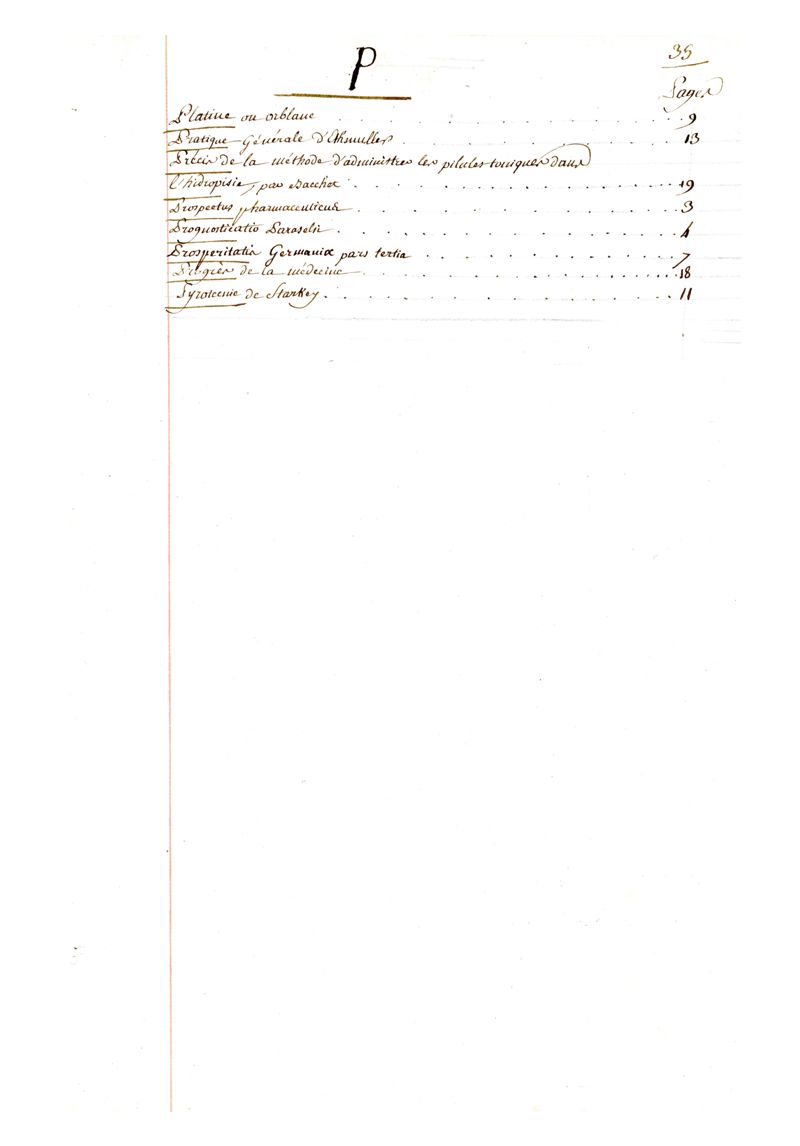 P
35
Pages
Platine ou orblanc . . . . . . . . . . . . . 9
Pratique Générale d'Ethmuller . . . . . . . . . . . 13
Précis de la méthode d'administrer les pilules toniques dans
l'hidropisie, par Bacher . . . . . . . . . . . . 19
Prospectus pharmaceuticus . . . . . . . . . . . . 3
Prognosticatio Paraselsi . . . . . . . . . . . . 4
Prosperitatis Germaniæ pars tertia . . . . . . . . . . 7
Progrès de la médecine . . . . . . . . . . . . 18
Pyrotecnie de Starkey . . . . . . . . . . . . 11